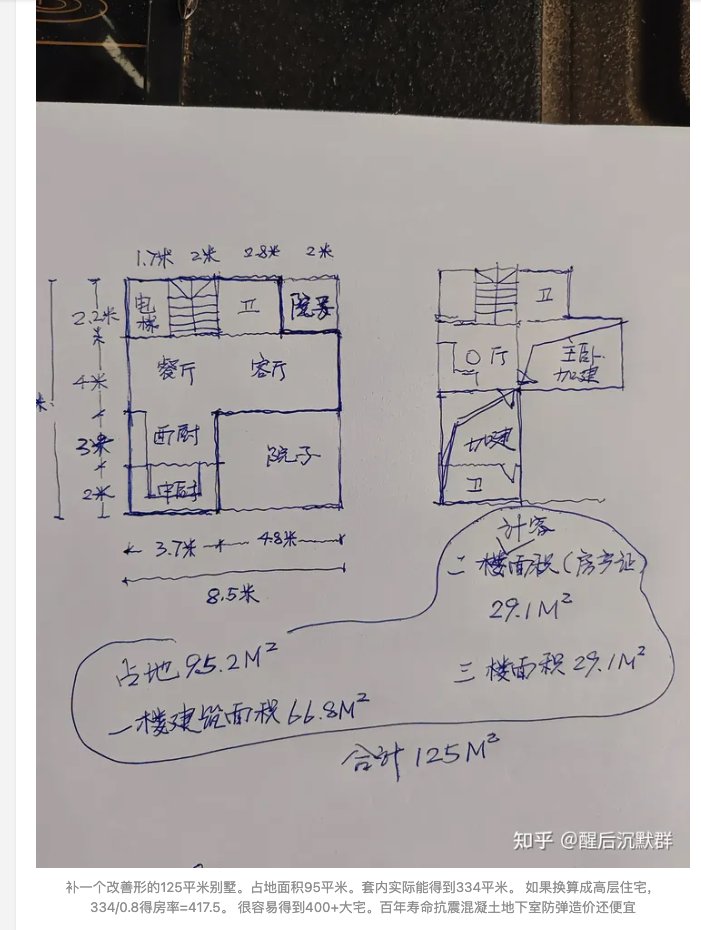 1.7米 2米 2.8米 2米
电梯 卫 院子
2.2米
餐厅 客厅
4米
西厨
院子
3米
中厨
2米
3.7米 4.8米
8.5米
卫
厅 主卧
加建
加建
卫
计容
二楼面积(房产证)
29.1M²
三楼面积 29.1M²
占地 95.2M²
一楼建筑面积 66.8M²
合计 125M²
知乎 @醒后沉默群
补一个改善形的125平米别墅。占地面积95平米。套内实际能得到334平米。 如果换算成高层住宅,
334/0.8得房率=417.5。 很容易得到400+大宅。百年寿命抗震混凝土地下室防弹造价还便宜